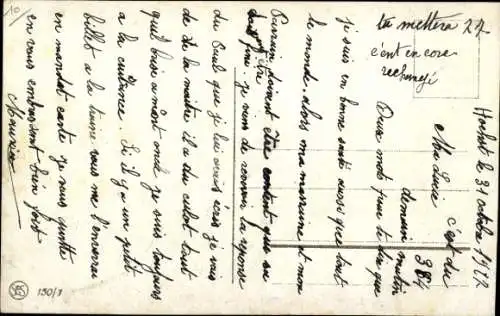 10
tu mettera 27
c'est en core
rechangé
Hochst le 31 octobre 1922
Ma Lucie c'est du
demain matin 384
Deux mots pour te dire que
je suis en bonne santé aussi que tout
le monde. alors ma marraine et mon
Parrain doivent être content que se
fini. je viens de recevoir la réponse
du Paul que je lui avais écris je vais
de la maitre il a du culot tout
a mont oncle je suis toujours
a la Si il y a un petit
billet a la tienne vous me l'enverrai
en mandat carte je vous quitte
en vous embrassant bien fort
Maurice
150/1